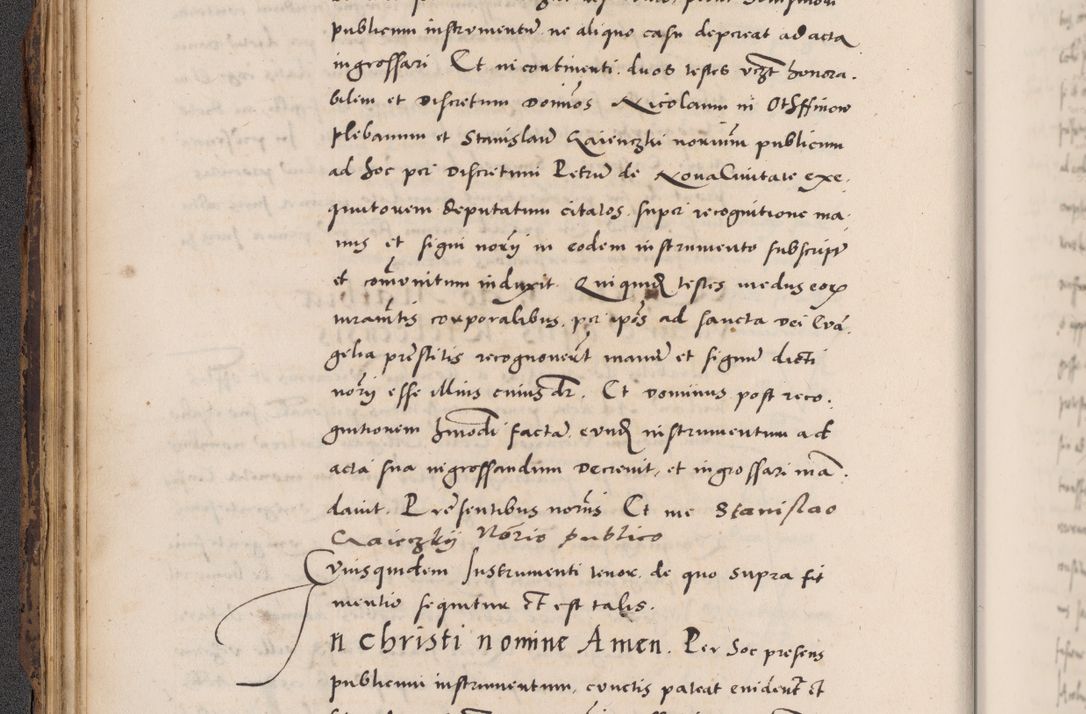 publicum instrumentū ne aliquo casu depereat ad acta
ingrossari Et in continenti duos testes vczt honora.
bilem et Discretum Dominos Nicolaum in Othffinow
plebanum et Stanislaū Gaieuczki notarium publicum
ad hoc per Discretum Petrū de Noua Ciuitate exe.
quutorem deputatum citatos super recognitione ma.
nus et signi nory in eodem instrumento subscript
et comunitum induxit Qui quidē testes medus eorū
iuramētis corporalibus per ipsos ad sancta Dei Euā.
gelia prestitis recognouerūt manum et signum dicti
nory esse illius cuius dr. Et Dominus post reco.
gnitionem hmōdi factā eundē instrumentum ad
acta sua ingrossandum Decreuit et ingrossari mā.
dauit Presentibus noriis Et me Stanislao
Gaieczkij Nōrio publico
Cuiusquidem Instrumenti tenor de quo supra fit
mentio sequitur Et est talis.
In Christi nomine Amen. Per hoc presens
publicum instrumentum, cunctis pateat euidentē et